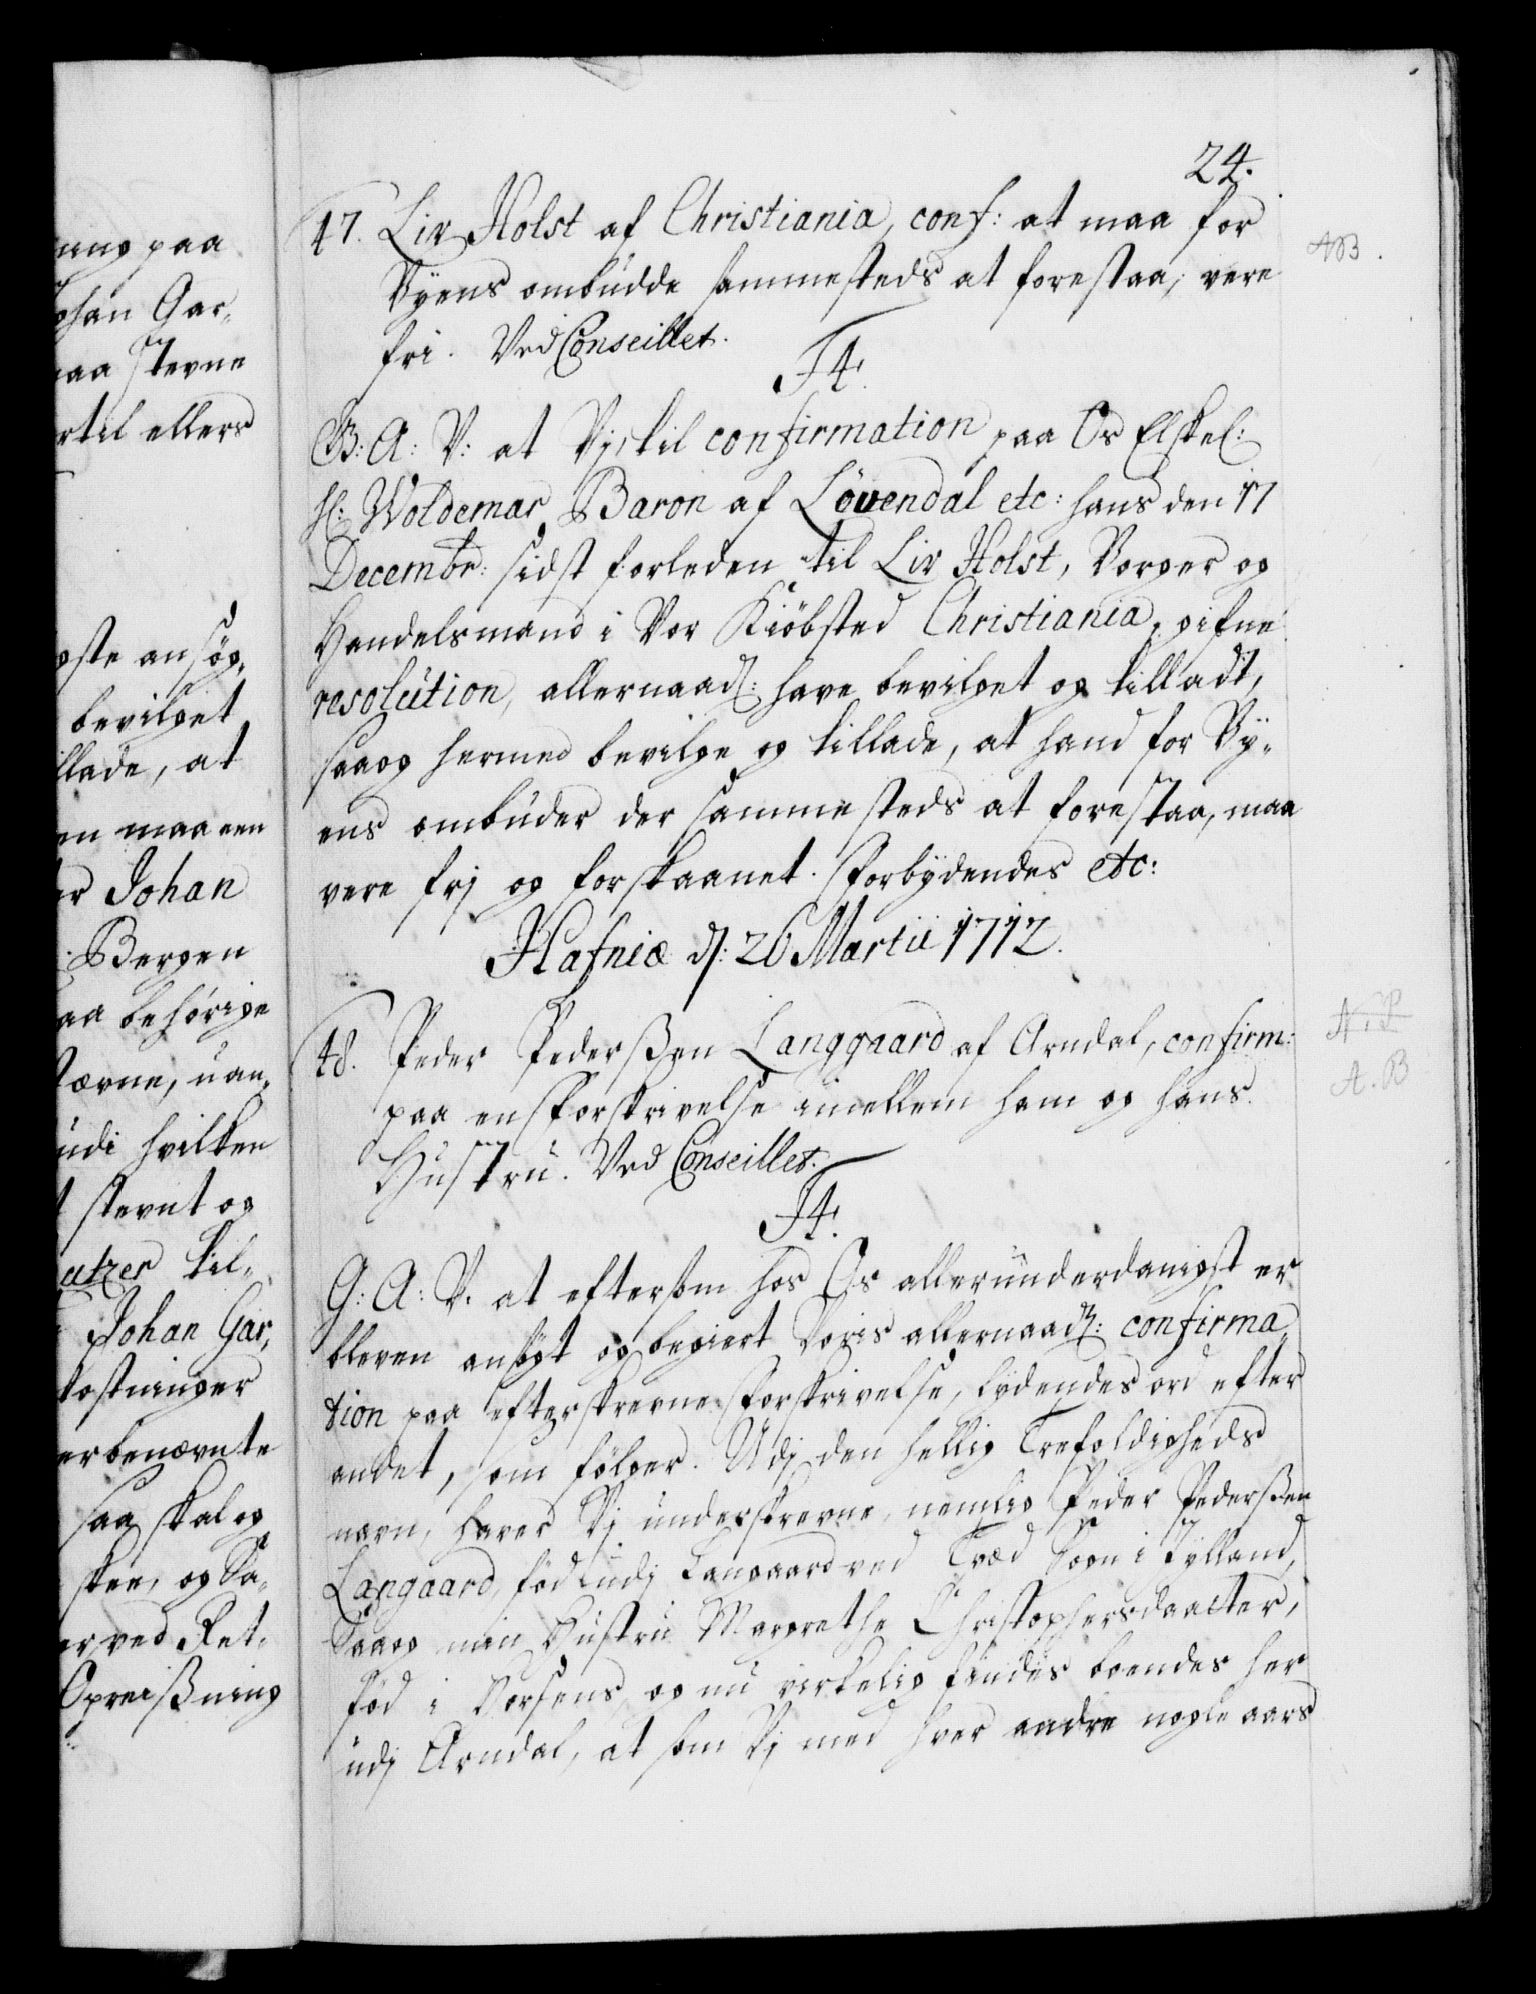 24.
47. Liv Holst af Christiania, conf: at maa for
Byens ombudde sammesteds at forestaa, vere
fri. Ved Conseillet.
F4.
G: A: V: at Vj, til confirmation paa Os Elskel:
Hr: Woldemar Baron af Løvendal etc: hans den 17
Decembr: sidst forleden til Liv Holst, Borger og
Handelsmand i Vor Kiöbsted Christiania, gifne
resolution, allernaadl: have bevilget og tilladt,
saa og hermed bevilge og tillade, at hand for By¬
ens ombuder der sammesteds at forestaa, maa
vere frj og forskaanet. Forbydendes etc:
Hafniæ d: 26 Martii 1712.
48. Peder Pederßen Langgaard af Arndal, confirm:
paa en Forskrivelse imellem ham og hans
Hustru. Ved Conseillet.
F4.
G: A: V. at eftersom hos Os allerunderdanigst er
bleven ansøgt og begiert Voris allernaadl: confirma¬
tion paa efterskrevne Forskrivelse, lydendes ord efter
andet, som følger. Udj den hellig Trefoldigheds
navn, haver Vj underskrevne, nemlig Peder Pederßen
Langaard, fød udj Langaard ved Tved Sogn i Jylland,
Saa og min Hustru Margrethe Christophersdaatter,
fød i Horsens, og nu virkelig findes boendes her
udj Arndal, at som Vj med hver andre nogle aars
AB.
N. P
A. B
ning paa
ohan Gar¬
maa stevne
rtil ellers
gste ansøg¬
bevilget
llade, at
en maa een
er Johan
Bergen
aa behørige
tævne, uan¬
udi hvilken
stevnt og
til¬
Johan Gar¬
kostninger
er benævnte
saa skal og
skee, og Sa¬
er ved Ret¬
Opreißning